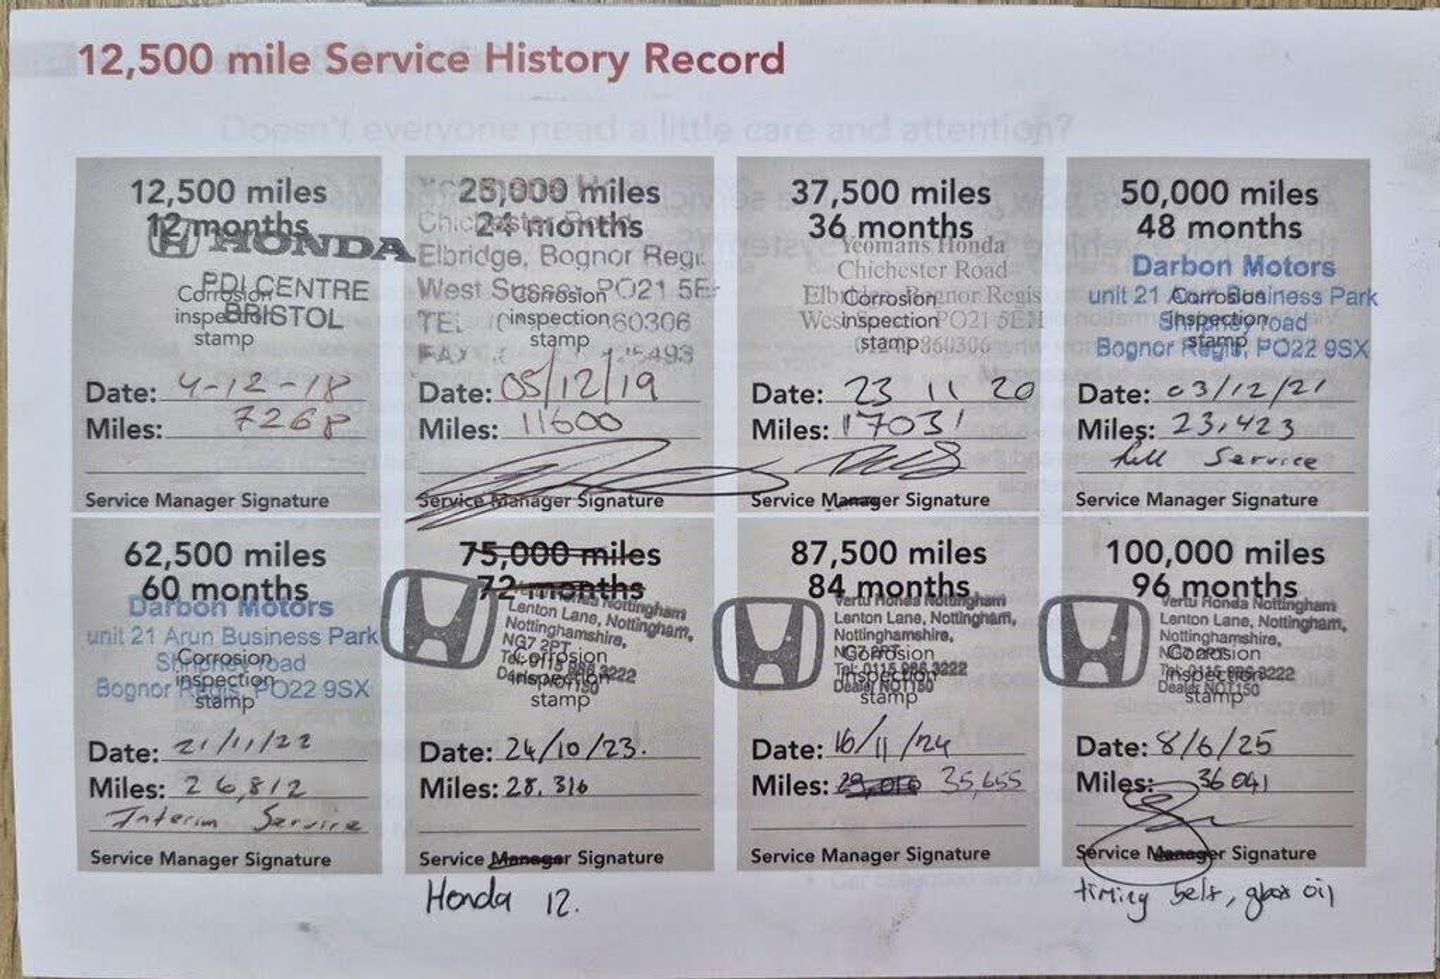 12,500 mile Service History Record
Doesn't everyone need a little care and attention?
12,500 miles
12 months
HONDA
PDI CENTRE
BRISTOL
Corrosion
inspection
stamp
Date: 4-12-18
Miles: 7268
Service Manager Signature
25,000 miles
24 months
Chichester Road
Elbridge, Bognor Regi
West Sussex PO21 5E
TEL 60306
FAX
Corrosion
inspection
stamp
Date: 05/12/19
Miles: 11600
Service Manager Signature
37,500 miles
36 months
Yeomans Honda
Chichester Road
Elbridge, Bognor Regis
West Sussex PO21 5EH
860306
Corrosion
inspection
stamp
Date: 23 11 20
Miles: 17031
Service Manager Signature
50,000 miles
48 months
Darbon Motors
unit 21 Arun Business Park
Shripney road
Bognor Regis, PO22 9SX
Corrosion
inspection
stamp
Date: 03/12/21
Miles: 23,423
full Service
Service Manager Signature
62,500 miles
60 months
Darbon Motors
unit 21 Arun Business Park
Shripney road
Bognor Regis, PO22 9SX
Corrosion
inspection
stamp
Date: 21/11/22
Miles: 26,812
Interim Service
Service Manager Signature
75,000 miles
72 months
Nottingham
Lenton Lane, Nottingham,
Nottinghamshire,
NG7 2PT
Tel: 0115 986 3222
Dealer NOT150
Corrosion
inspection
stamp
Date: 24/10/23.
Miles: 28.316
Service Manager Signature
Honda 12.
87,500 miles
84 months
Vertu Honda Nottingham
Lenton Lane, Nottingham,
Nottinghamshire,
NG7 2PT
Tel: 0115 986 3222
Dealer NOT150
Corrosion
inspection
stamp
Date: 16/11/24
Miles: 35,655
Service Manager Signature
100,000 miles
96 months
Vertu Honda Nottingham
Lenton Lane, Nottingham,
Nottinghamshire,
NG7 2PT
Tel: 0115 986 3222
Dealer NOT150
Corrosion
inspection
stamp
Date: 8/6/25
Miles: 36041
Service Manager Signature
timing belt, gbox oil